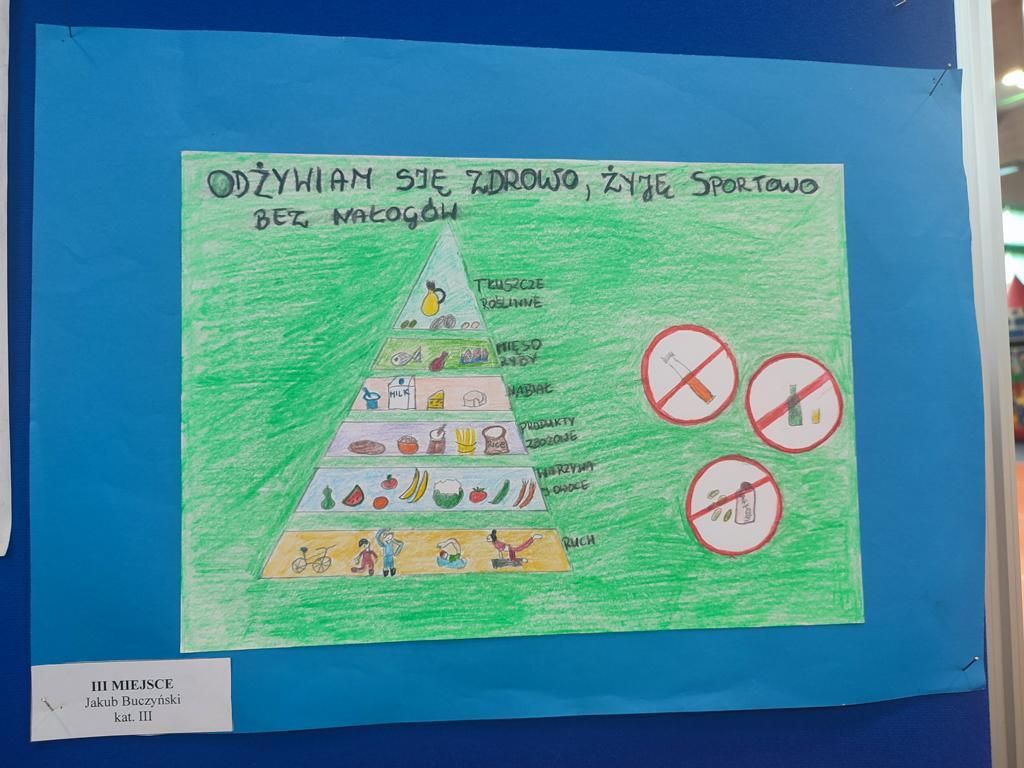 ODŻYWIAM SIĘ ZDROWO, ŻYJĘ SPORTOWO
BEZ NAŁOGÓW
TŁUSZCZE
ROŚLINNE
MIĘSO
RYBY
NABIAŁ
MILK
PRODUKTY
ZBOŻOWE
RICE
WARZYWA
I OWOCE
RUCH
III MIEJSCE
Jakub Buczyński
kat. III